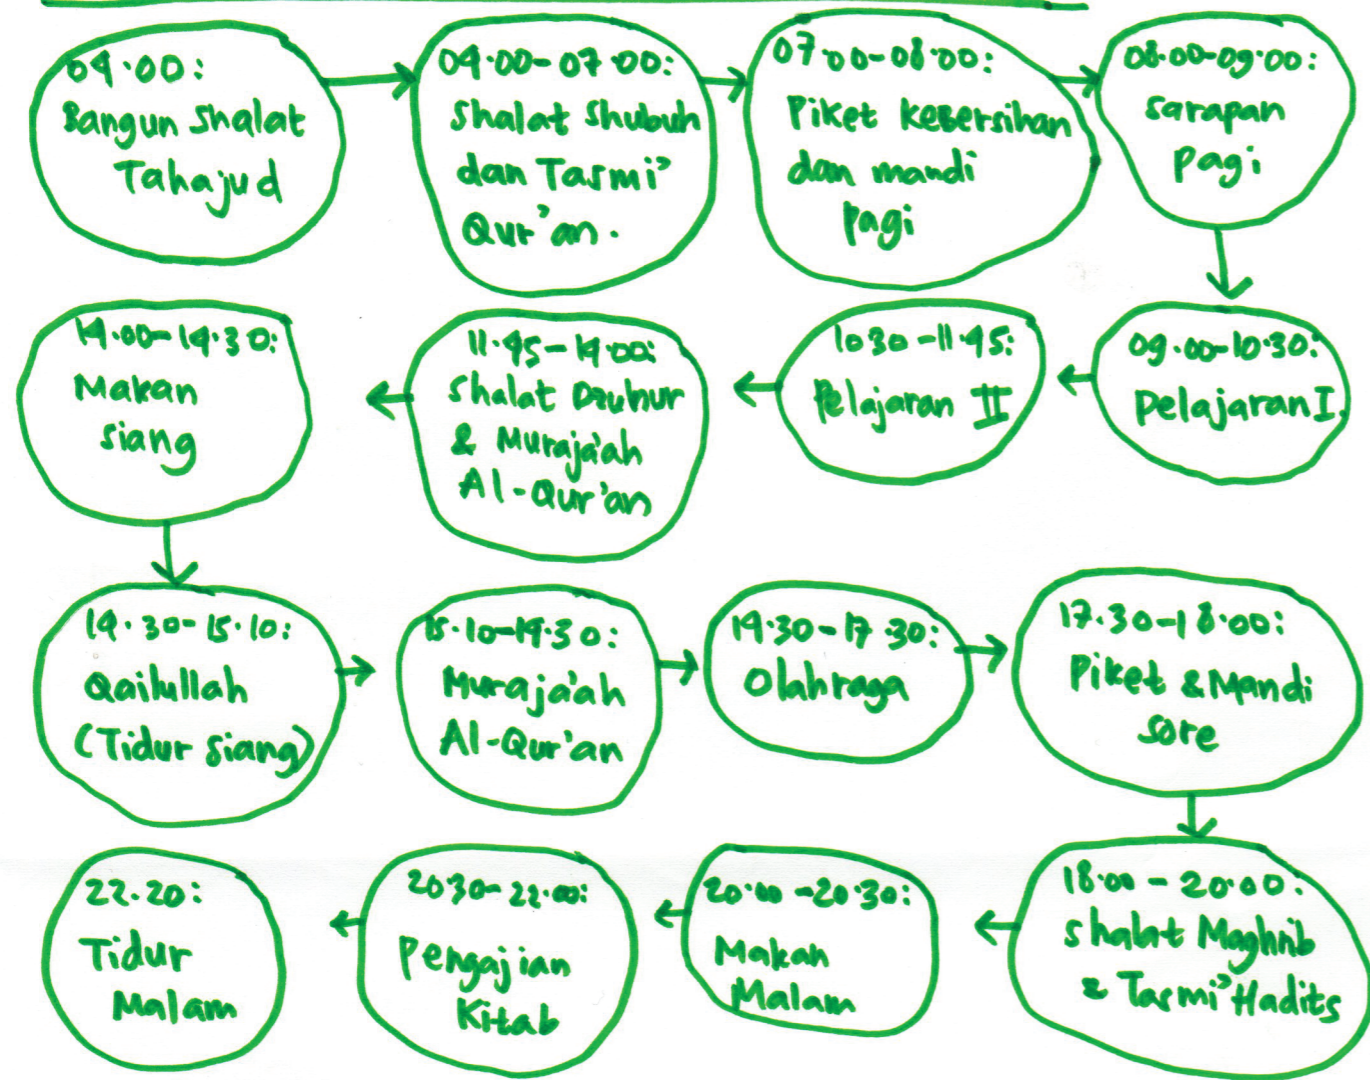 04.00:
Bangun Shalat
Tahajud
04.00-07.00:
Shalat Shubuh
dan Tasmi'
Qur'an.
07.00-08.00:
Piket kebersihan
dan mandi
pagi
08.00-09.00:
Sarapan
pagi
09.00-10.30:
Pelajaran I.
10.30-11.45:
Pelajaran II
11.45-14.00:
Shalat Dzuhur
& Muraja'ah
Al-Qur'an
14.00-14.30:
Makan
siang
14.30-15.10:
Qailullah
(Tidur siang)
15.10-14.30:
Muraja'ah
Al-Qur'an
14.30-17.30:
Olahraga
17.30-18.00:
Piket & Mandi
sore
18.00-20.00:
Shalat Maghrib
& Tasmi' Hadits
20.00-20.30:
Makan
Malam
20.30-22.00:
Pengajian
Kitab
22.20:
Tidur
Malam